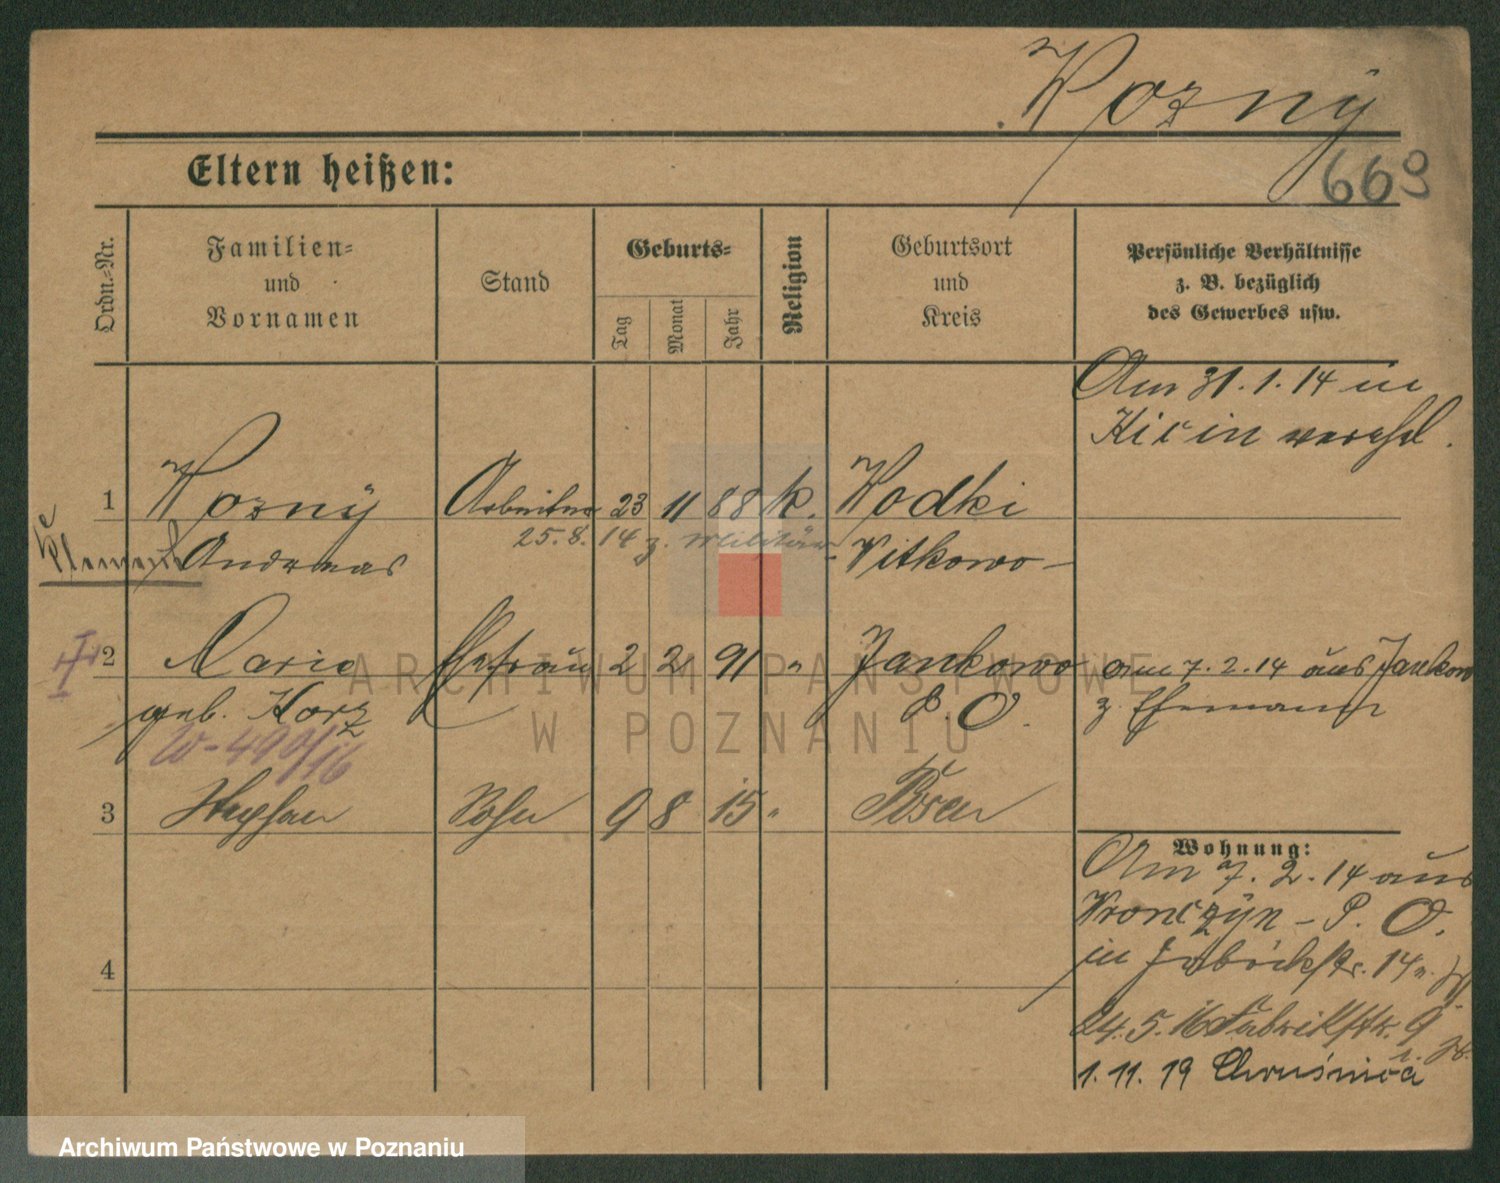 Wozny
669
Eltern heißen:
Ordn.-Nr.
Familien- und Vornamen
Stand
Geburts-
Tag
Monat
Jahr
Religion
Geburtsort und Kreis
Persönliche Verhältnisse z. B. bezüglich des Gewerbes usw.
Am 31.1.14 in
Kicin verehl.
1 Wozny Arbeiter 23 11 88 k. Wodki
25.8.14 z. Militär
Andreas Witkowo
2 Maria Ehefrau 2 2 91 " Jankowo am 7.2.14 aus Jankowo
geb. Korz P. O. z. Ehemann
W-490/16
3 Stephan Sohn 9 8 15 " Posen
Wohnung:
Am 7.2.14 aus
Wronczyn - P. O.
in Fabrikstr. 14
4
24.5.16 Fabrikstr. 9
1.11.19
ARCHIWUM PAŃSTWOWE
W POZNANIU
Archiwum Państwowe w Poznaniu